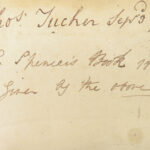 hos Tucker Sepr
Spencers Book
Given by the above